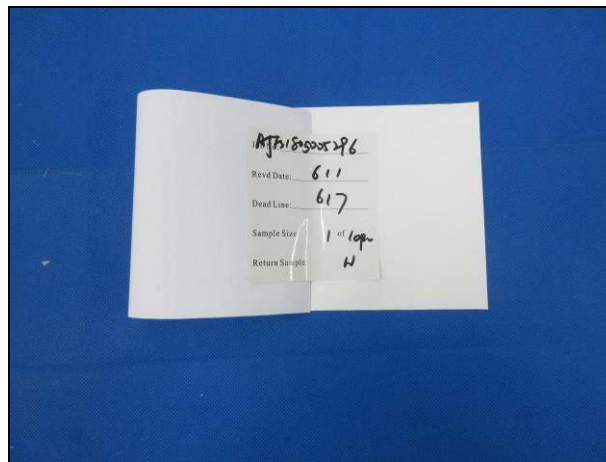 AJFS1805005296
Revd Date: 611
Dead Line: 617
Sample Size: 1 of
Return Sample: N